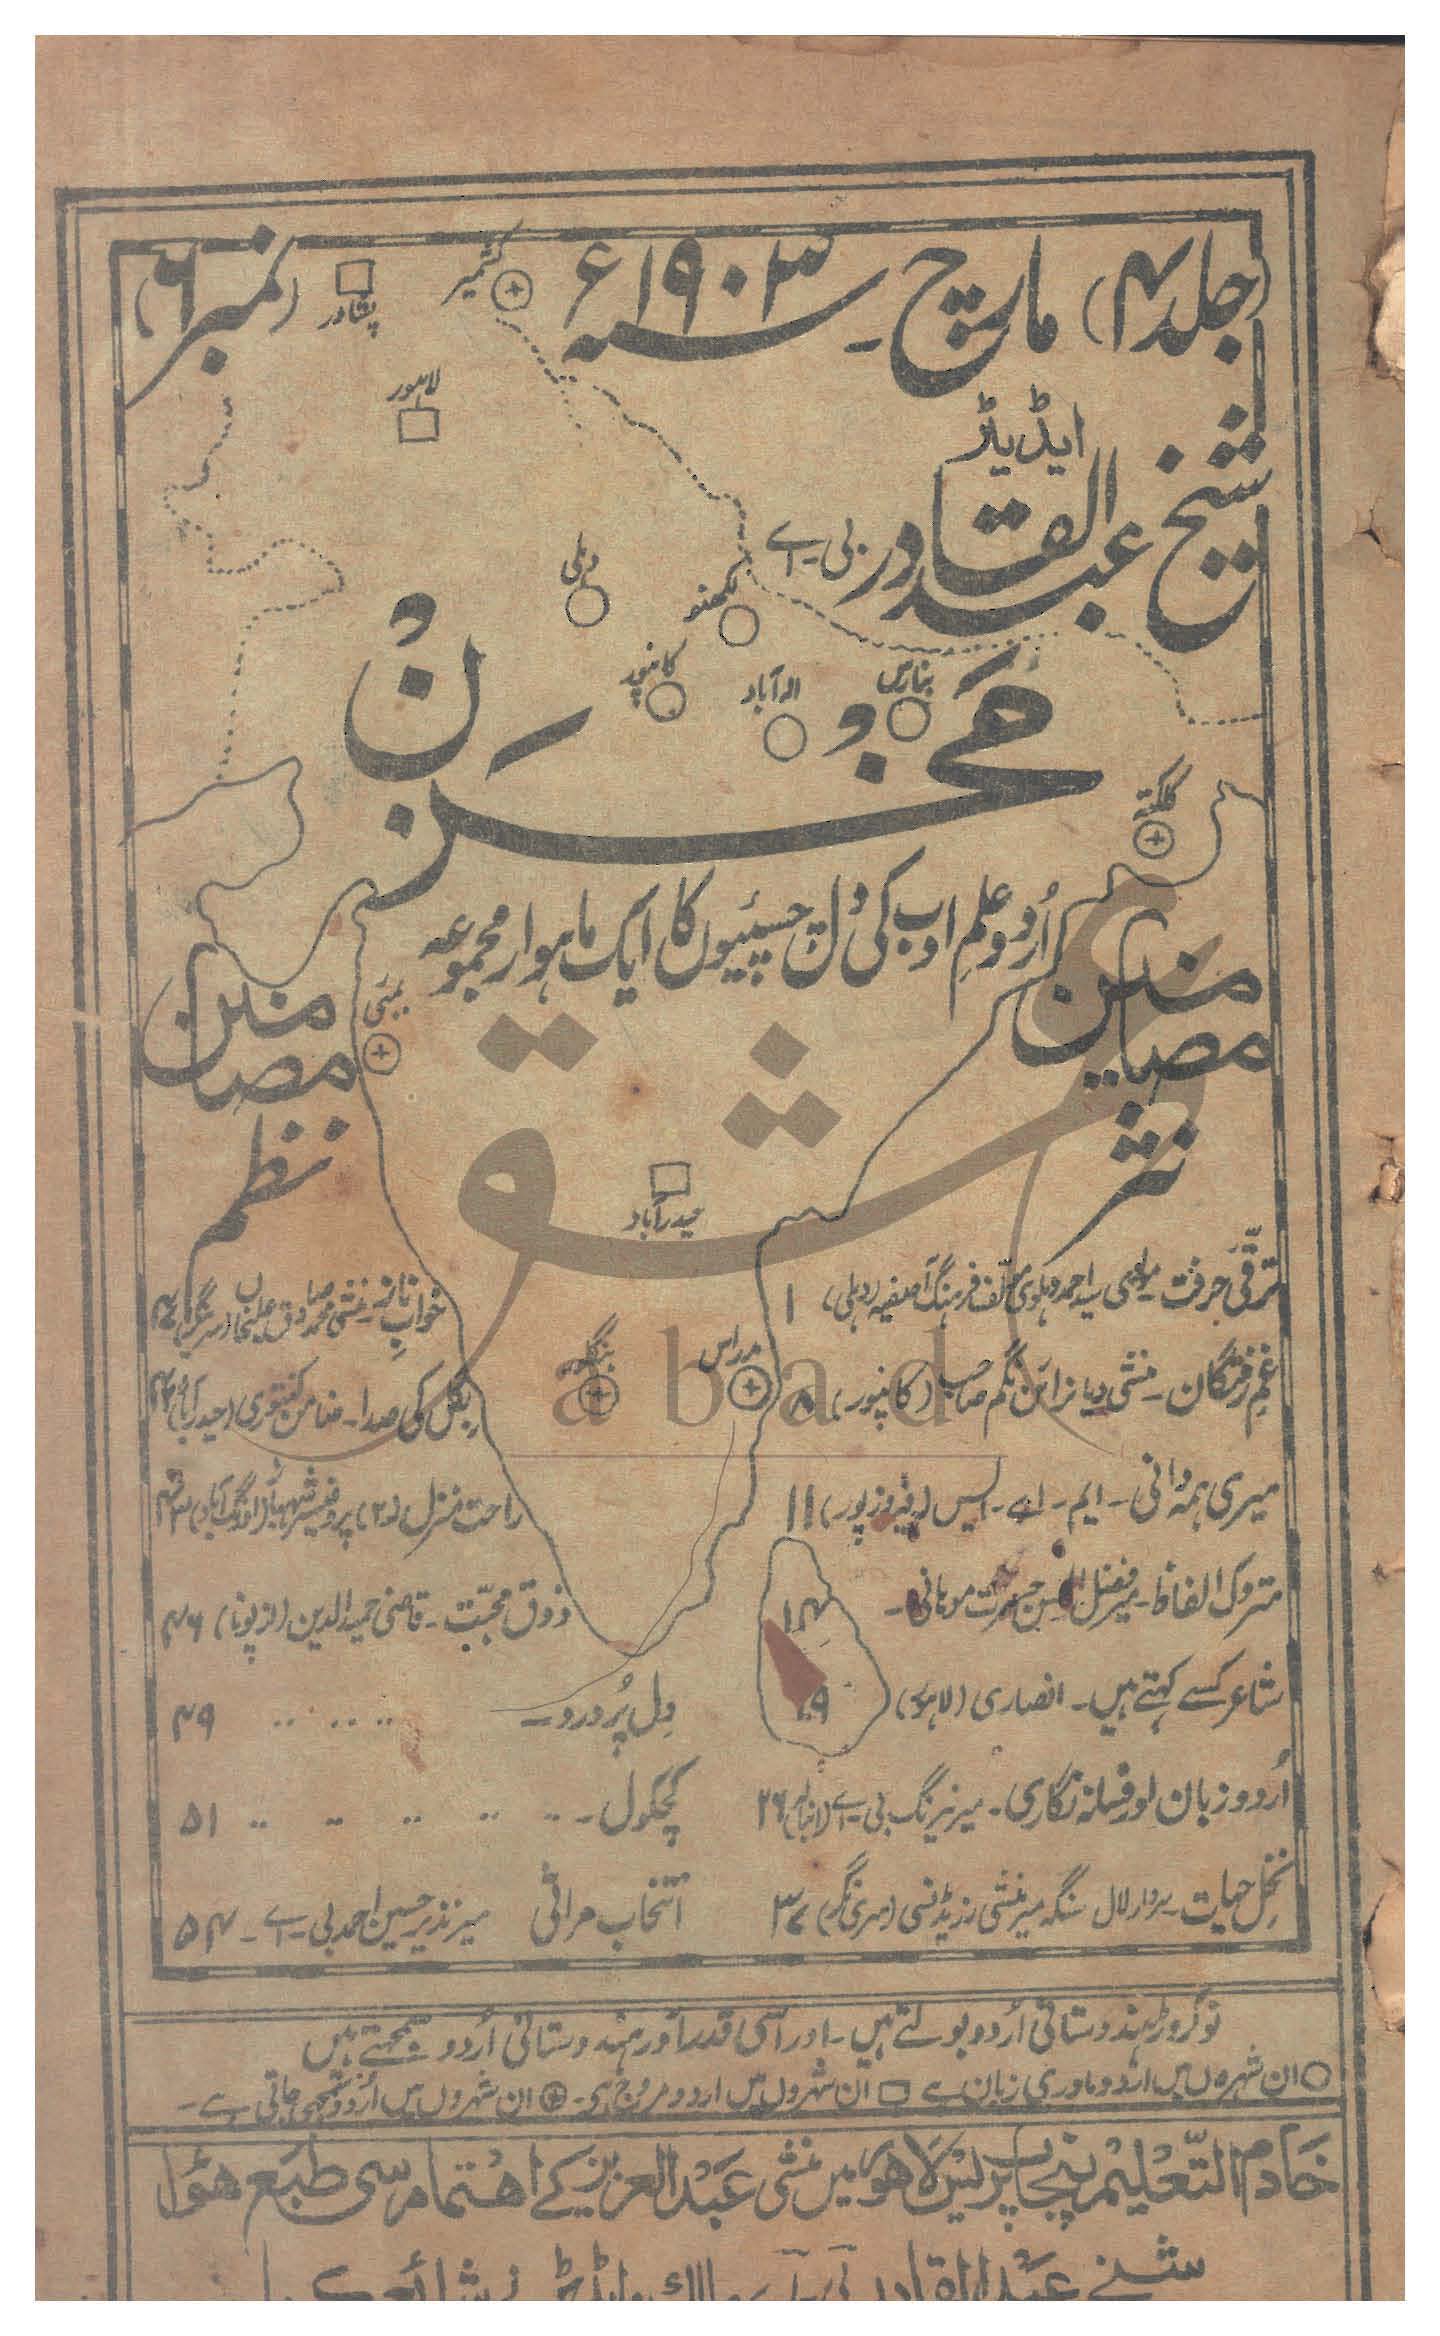 (جلد ۴) مارچ ۔ سنہ ۱۹۰۳ء (نمبر ۶)
کشمیر
پشاور
لاہور
ایڈیٹر
شیخ عبدالقادر بی۔اے
دہلی
لکھنؤ
کانپور
الہ آباد
بنارس
مخزن
کلکتہ
اُردو علم ادب کی دلچسپیوں کا ایک ماہوار مجموعہ
بمبئی
حیدرآباد
مدراس
بنگلور
مضامین نثر
ترقّی حرفت۔ مولوی سید احمد دہلوی مؤلف فرہنگ آصفیہ (دہلی) ۱
غمِ رفتگان۔ منشی دیا نراین نگم صاحب (کانپور) ۸
میری ہمہ دانی۔ ایم۔اے۔ایس (فیروزپور) ۱۱
متروک الفاظ۔ میر فضل الحسن حسرت موہانی۔ ۱۴
شاعر کسے کہتے ہیں۔ انصاری (لاہور) ۱۹
اُردو زبان اور فسانہ نگاری۔ میر نیرنگ بی۔اے (انبالہ) ۲۶
نخلِ حیات۔ سردار لال سنگہ میر منشی رزیڈنسی (سری نگر) ۳۷
مضامین نظم
خوابِ ناز۔ منشی محمد صادق علیخاں (سرینگر)
بگل کی صدا۔ ضامن کنتوری (حیدرآباد)
راحت منزل (۲) پروفیسر شہباز (اورنگ آباد) ۴۳
ذوقِ محبّت۔ قاضی حمید الدین (از پونا) ۴۶
دلِ پُر درد۔ ۴۹
کچکول۔ ۵۱
انتخاب مراثی میر نذیر حسین احمد بی۔اے۔ ۵۴
نو کروڑ ہندوستانی اُردو بولتے ہیں۔ اور اسی قدر اَور ہندوستانی اُردو سمجہتے ہیں
○ ان شہروں میں اُردو مادری زبان ہے □ ان شہروں میں اردو مروج ہے۔ ⊕ ان شہروں میں اُردو سمجھی جاتی ہے۔
خادم التّعلیم پنجاب پریس لاہور میں منشی عبدالعزیز کے اہتمام سی طبع ہؤا
عشق
abad